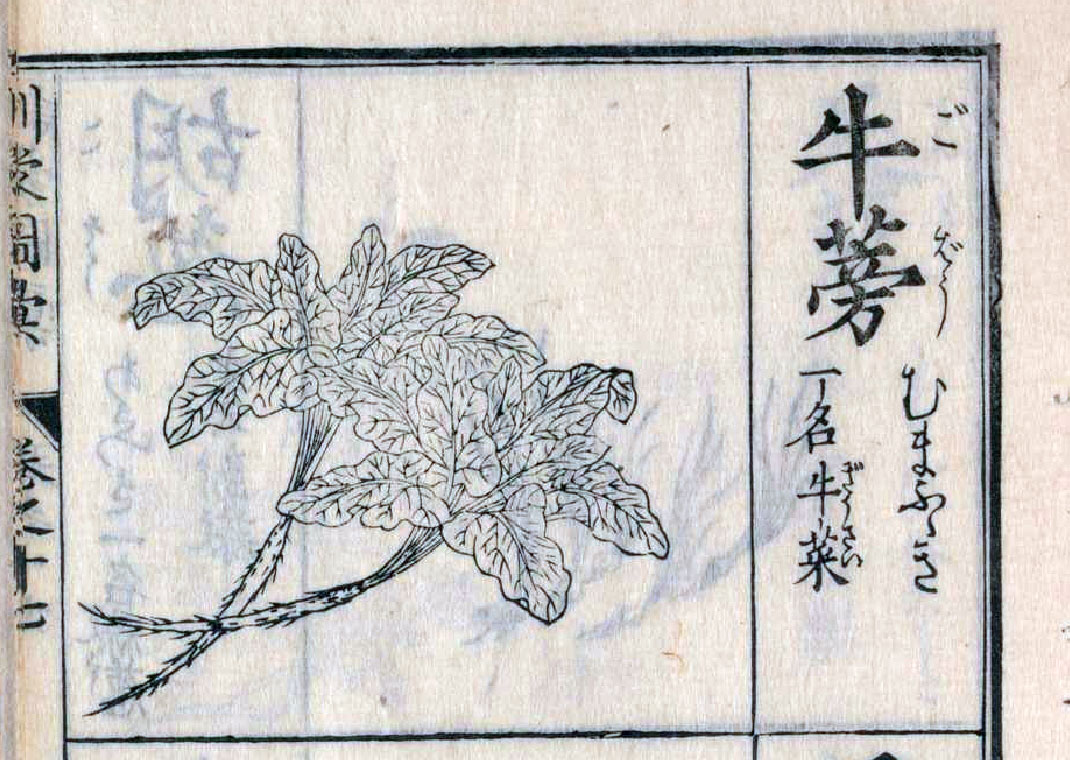 ごばう むまふゝき
牛蒡 一名牛菜
ぎうさい
訓蒙圖彙 卷之十七